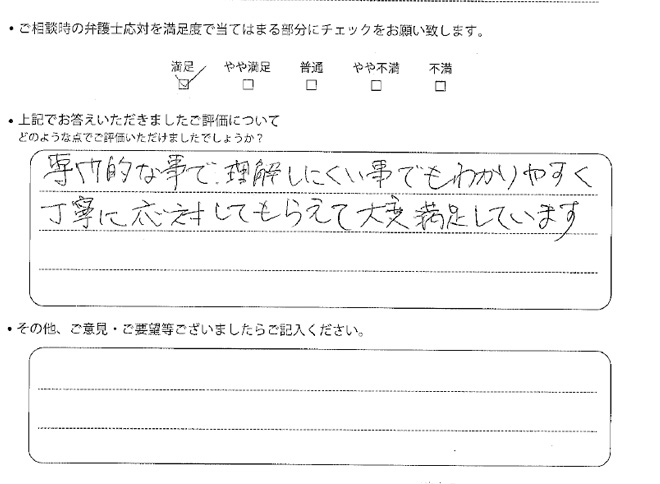 • ご相談時の弁護士応対を満足度で当てはまる部分にチェックをお願い致します。
満足 やや満足 普通 やや不満 不満
• 上記でお答えいただきましたご評価について
どのような点でご評価いただけましたでしょうか？
専門的な事で、理解しにくい事でもわかりやすく
丁寧に応対してもらえて大変満足しています
• その他、ご意見・ご要望等ございましたらご記入ください。